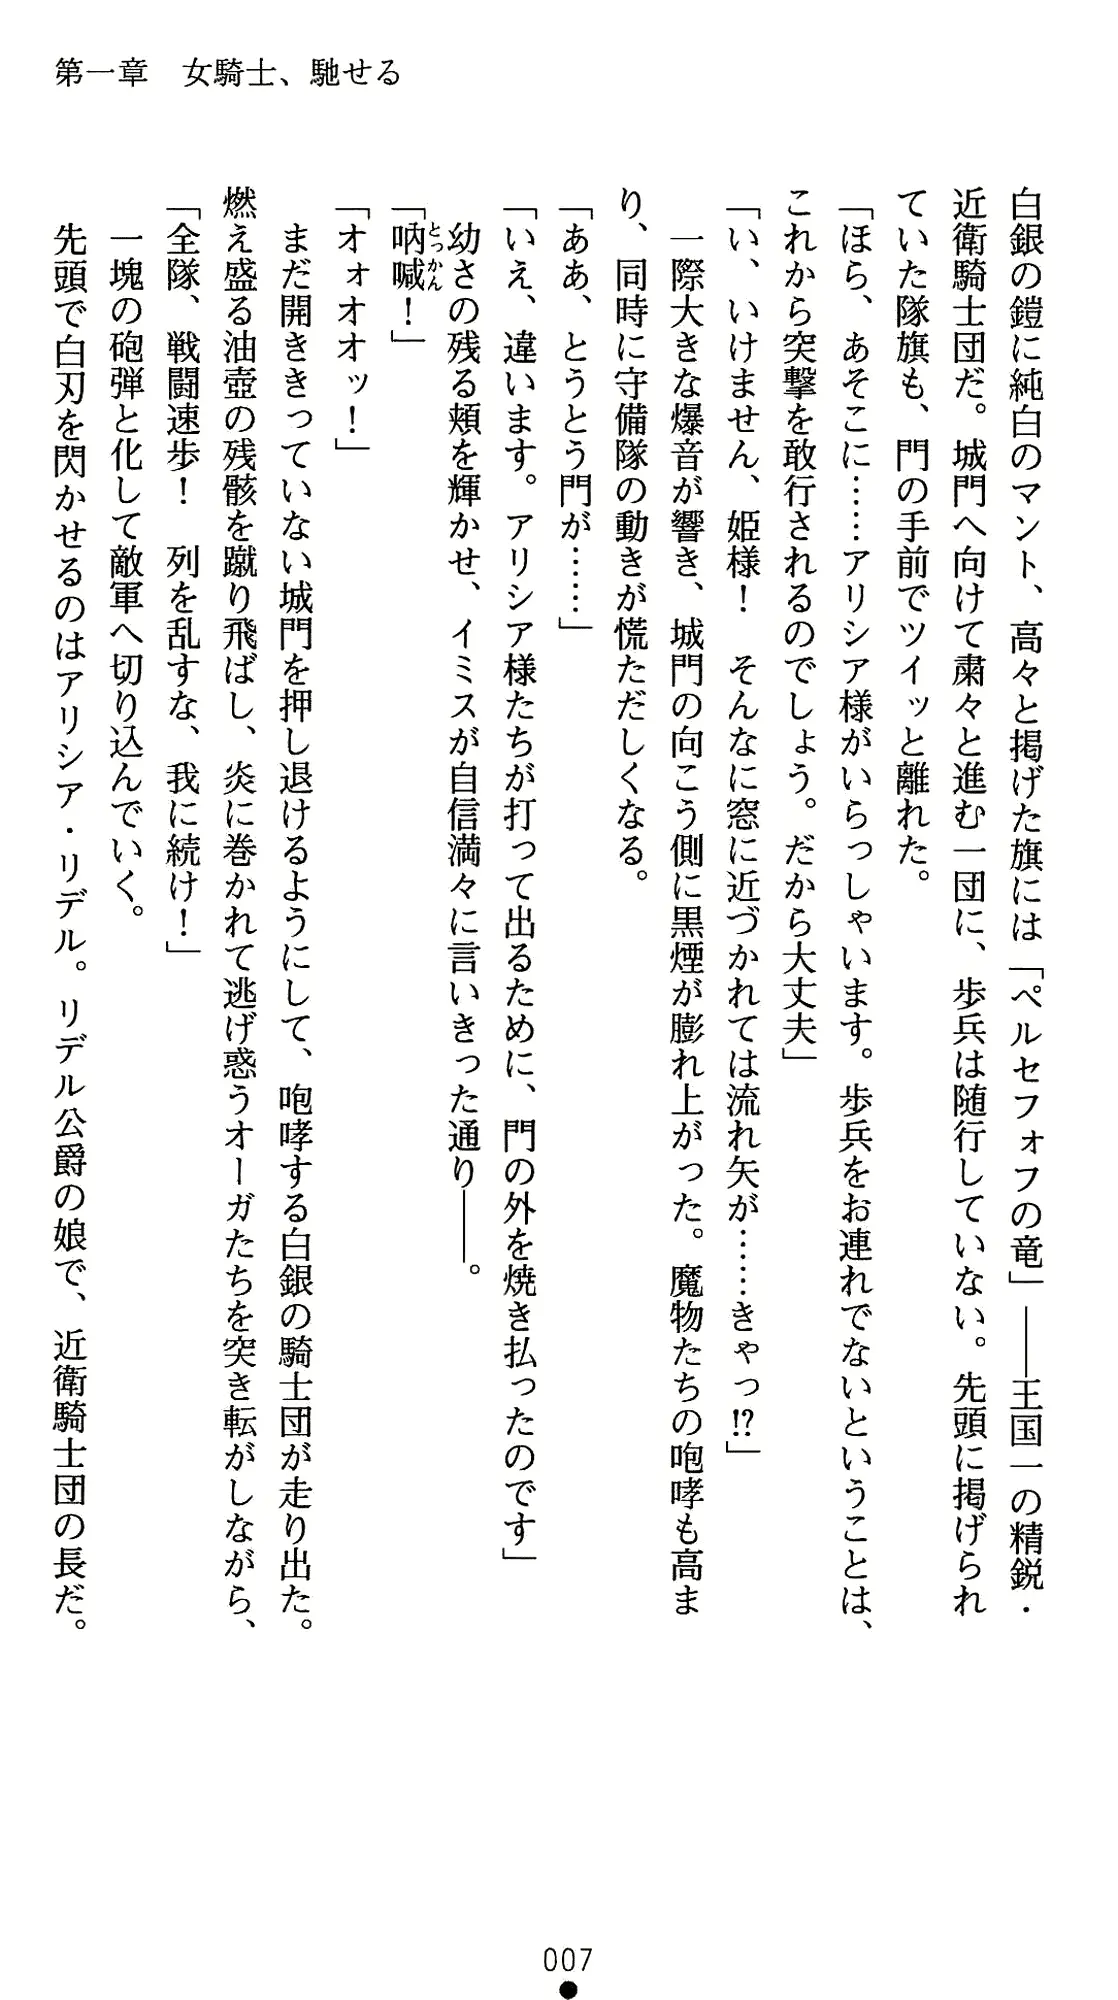 第一章　女騎士、馳せる
白銀の鎧に純白のマント、高々と掲げた旗には「ペルセフォフの竜」――王国一の精鋭・
近衛騎士団だ。城門へ向けて粛々と進む一団に、歩兵は随行していない。先頭に掲げられ
ていた隊旗も、門の手前でツイッと離れた。
「ほら、あそこに……アリシア様がいらっしゃいます。歩兵をお連れでないということは、
これから突撃を敢行されるのでしょう。だから大丈夫」
「い、いけません、姫様！　そんなに窓に近づかれては流れ矢が……きゃっ!?」
　一際大きな爆音が響き、城門の向こう側に黒煙が膨れ上がった。魔物たちの咆哮も高ま
り、同時に守備隊の動きが慌ただしくなる。
「ああ、とうとう門が……」
「いえ、違います。アリシア様たちが打って出るために、門の外を焼き払ったのです」
　幼さの残る頬を輝かせ、イミスが自信満々に言いきった通り――。
「吶喊！」
とっかん
「オォオオッ！」
　まだ開ききっていない城門を押し退けるようにして、咆哮する白銀の騎士団が走り出た。
燃え盛る油壺の残骸を蹴り飛ばし、炎に巻かれて逃げ惑うオーガたちを突き転がしながら、
「全隊、戦闘速歩！　列を乱すな、我に続け！」
　一塊の砲弾と化して敵軍へ切り込んでいく。
　先頭で白刃を閃かせるのはアリシア・リデル。リデル公爵の娘で、近衛騎士団の長だ。
007